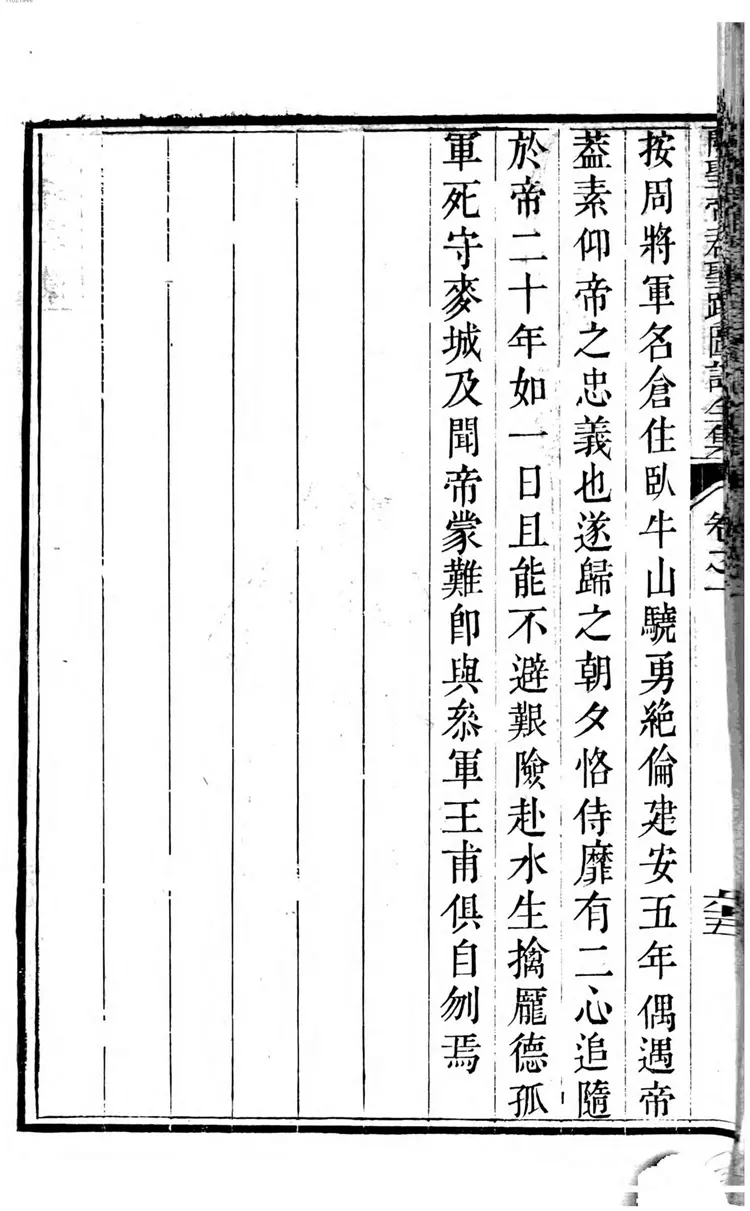 關聖帝君聖蹟圖誌全集 卷之一 六五
按周將軍名倉住臥牛山驍勇絶倫建安五年偶遇帝
葢素仰帝之忠義也遂歸之朝夕恪侍靡有二心追隨
於帝二十年如一日且能不避艱險赴水生擒龐德孤
軍死守麥城及聞帝蒙難卽與叅軍王甫俱自刎焉